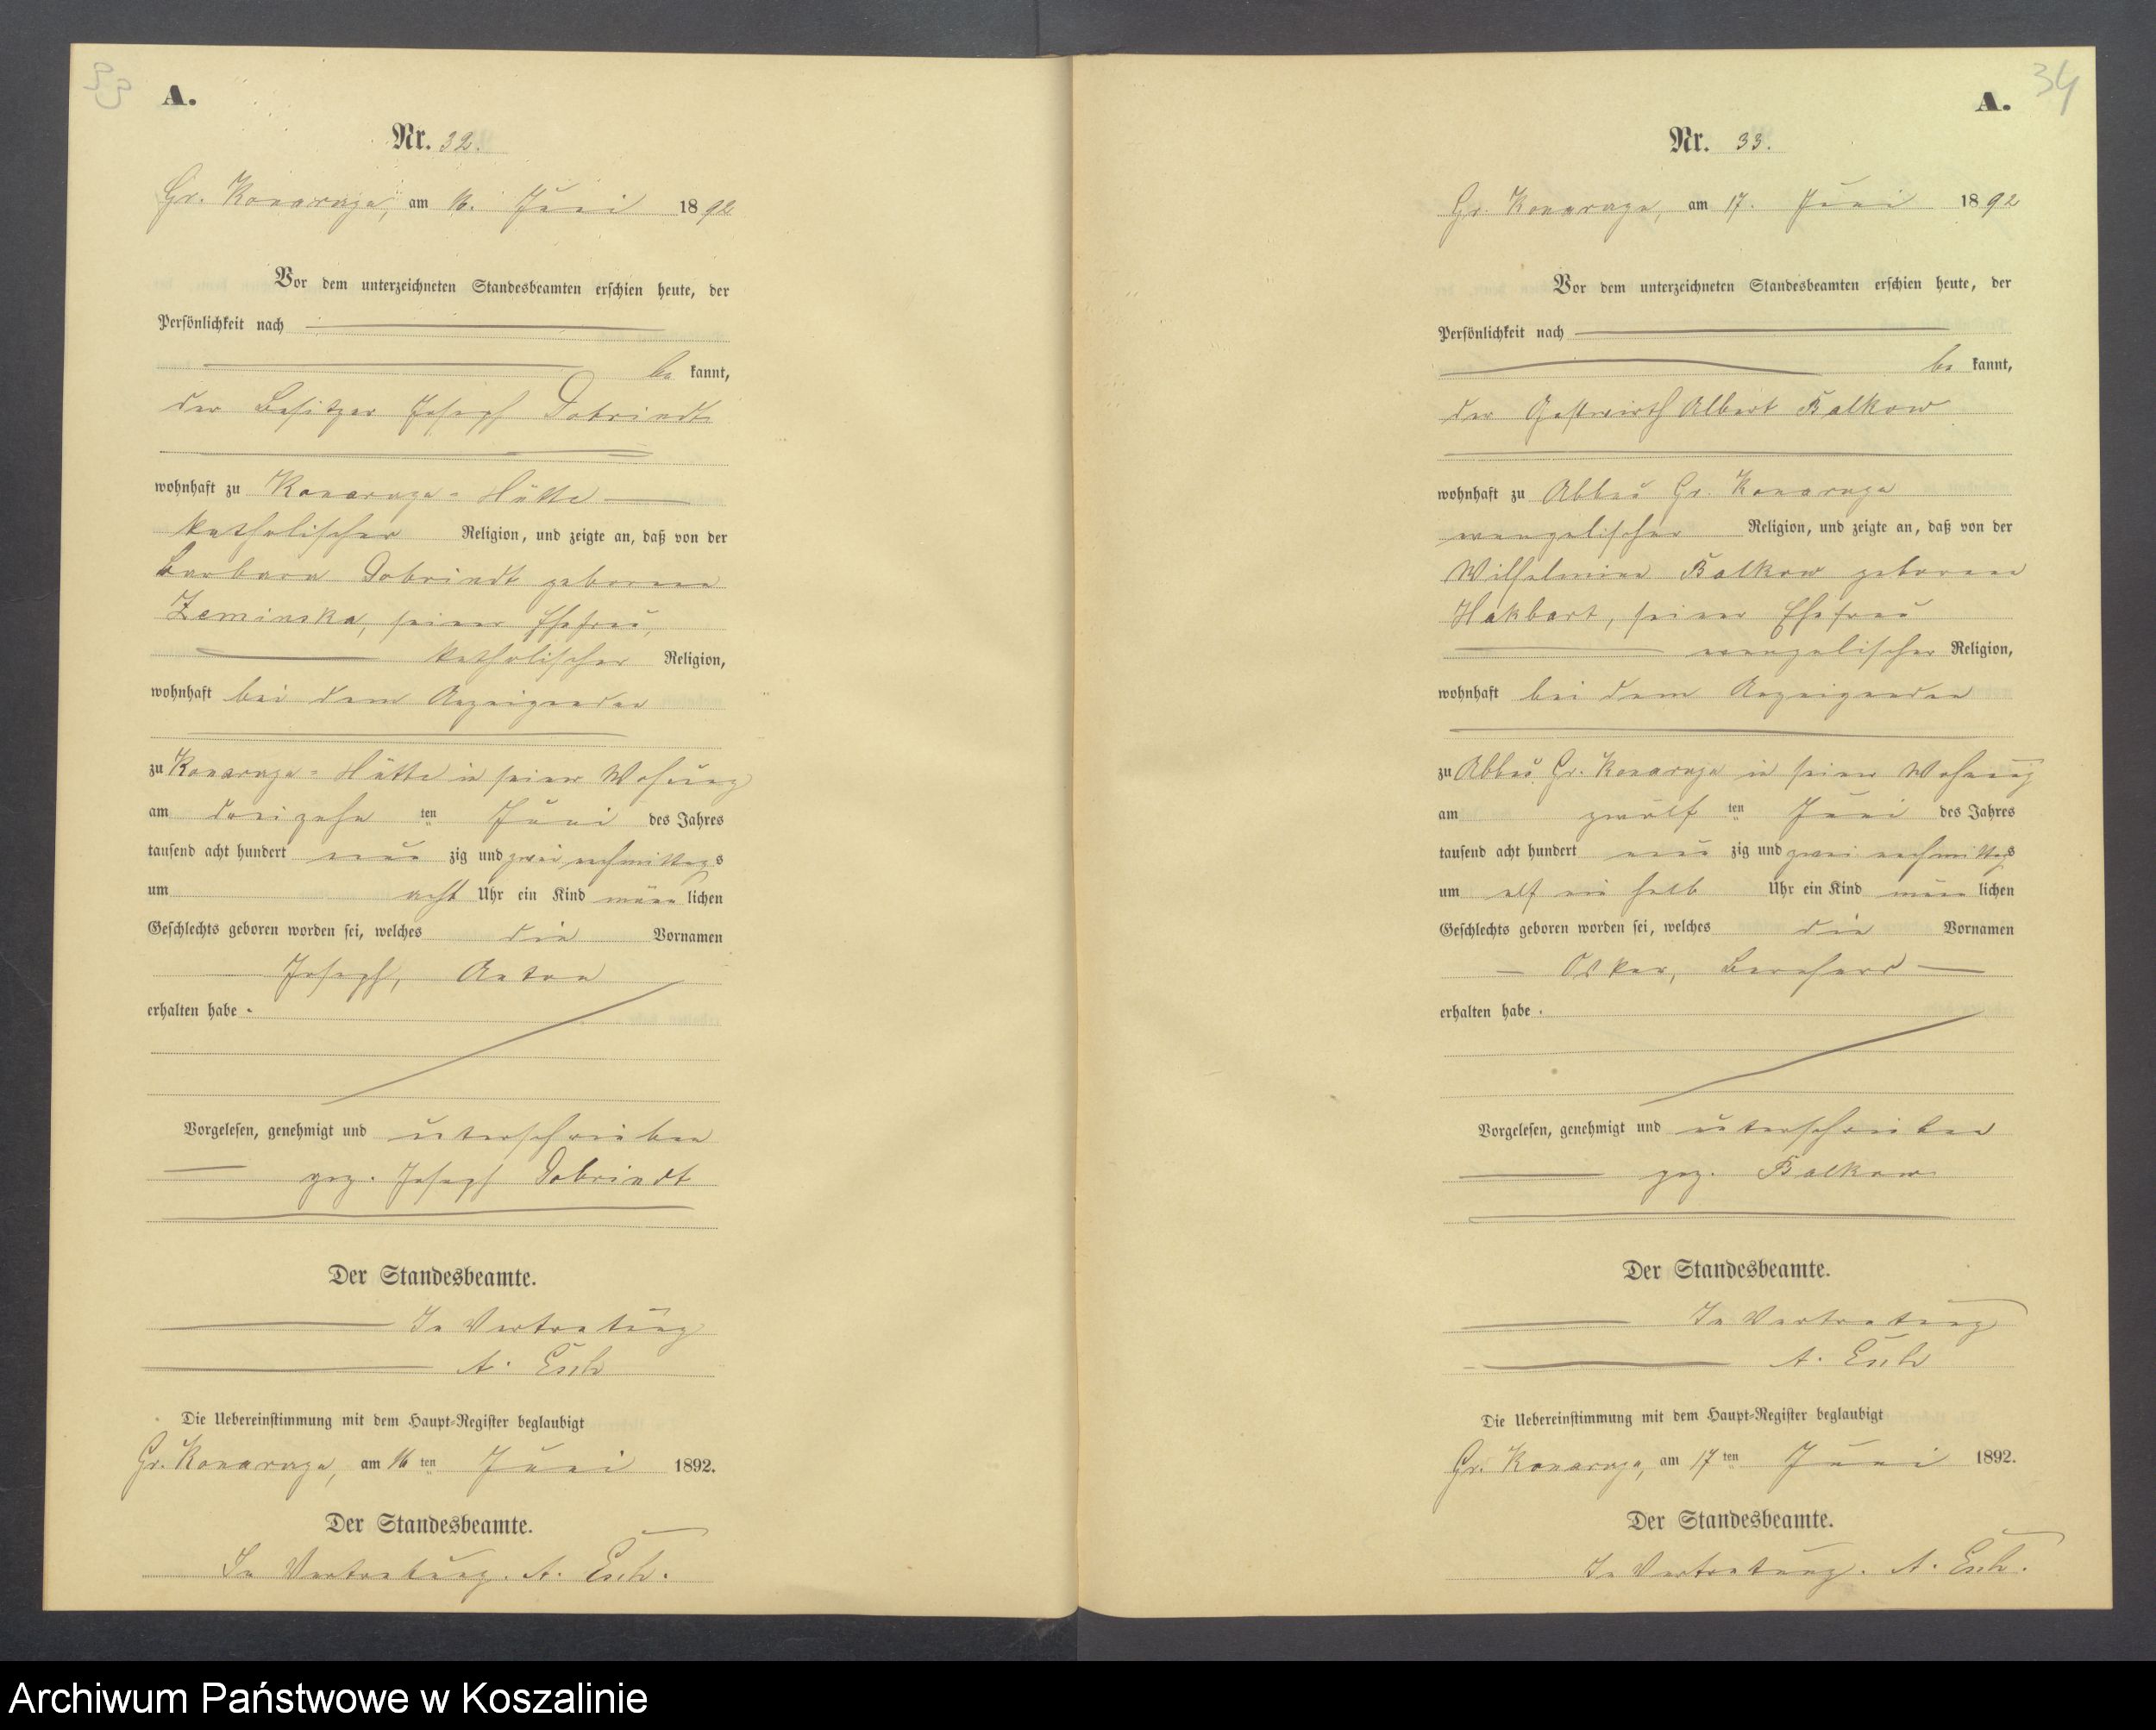 33
A.
Nr. 32.
Gr. Konarzyn, am 16. Juni 1892
Vor dem unterzeichneten Standesbeamten erschien heute, der
Persönlichkeit nach
be kannt,
der Besitzer Joseph Dobrindt
wohnhaft zu Konarzyn-Hütte
katholischer Religion, und zeigte an, daß von der
Barbara Dobrindt geborene
Zeminska, seiner Ehefrau,
katholischer Religion,
wohnhaft bei dem Anzeigenden
zu Konarzyn-Hütte in seiner Wohnung
am dreizehn ten Juni des Jahres
tausend acht hundert neun zig und zwei nachmittags
um acht Uhr ein Kind männ lichen
Geschlechts geboren worden sei, welches die Vornamen
Joseph, Anton
erhalten habe.
Vorgelesen, genehmigt und unterschrieben
gez. Joseph Dobrindt
Der Standesbeamte.
In Vertretung
A. Esch
Die Uebereinstimmung mit dem Haupt-Register beglaubigt
Gr. Konarzyn, am 16 ten Juni 1892.
Der Standesbeamte.
In Vertretung. A. Esch.
34
A.
Nr. 33.
Gr. Konarzyn, am 17. Juni 1892
Vor dem unterzeichneten Standesbeamten erschien heute, der
Persönlichkeit nach
be kannt,
der Gastwirth Albert Balkow
wohnhaft zu Abbau Gr. Konarzyn
evangelischer Religion, und zeigte an, daß von der
Wilhelmine Balkow geborene
Hakbart, seiner Ehefrau
evangelischer Religion,
wohnhaft bei dem Anzeigenden
zu Abbau Gr. Konarzyn in seiner Wohnung
am zwölf ten Juni des Jahres
tausend acht hundert neun zig und zwei nachmittags
um elf ein halb Uhr ein Kind männ lichen
Geschlechts geboren worden sei, welches die Vornamen
Oskar, Bernhard
erhalten habe.
Vorgelesen, genehmigt und unterschrieben
gez. Balkow
Der Standesbeamte.
In Vertretung
A. Esch
Die Uebereinstimmung mit dem Haupt-Register beglaubigt
Gr. Konarzyn, am 17 ten Juni 1892.
Der Standesbeamte.
In Vertretung. A. Esch.
Archiwum Państwowe w Koszalinie